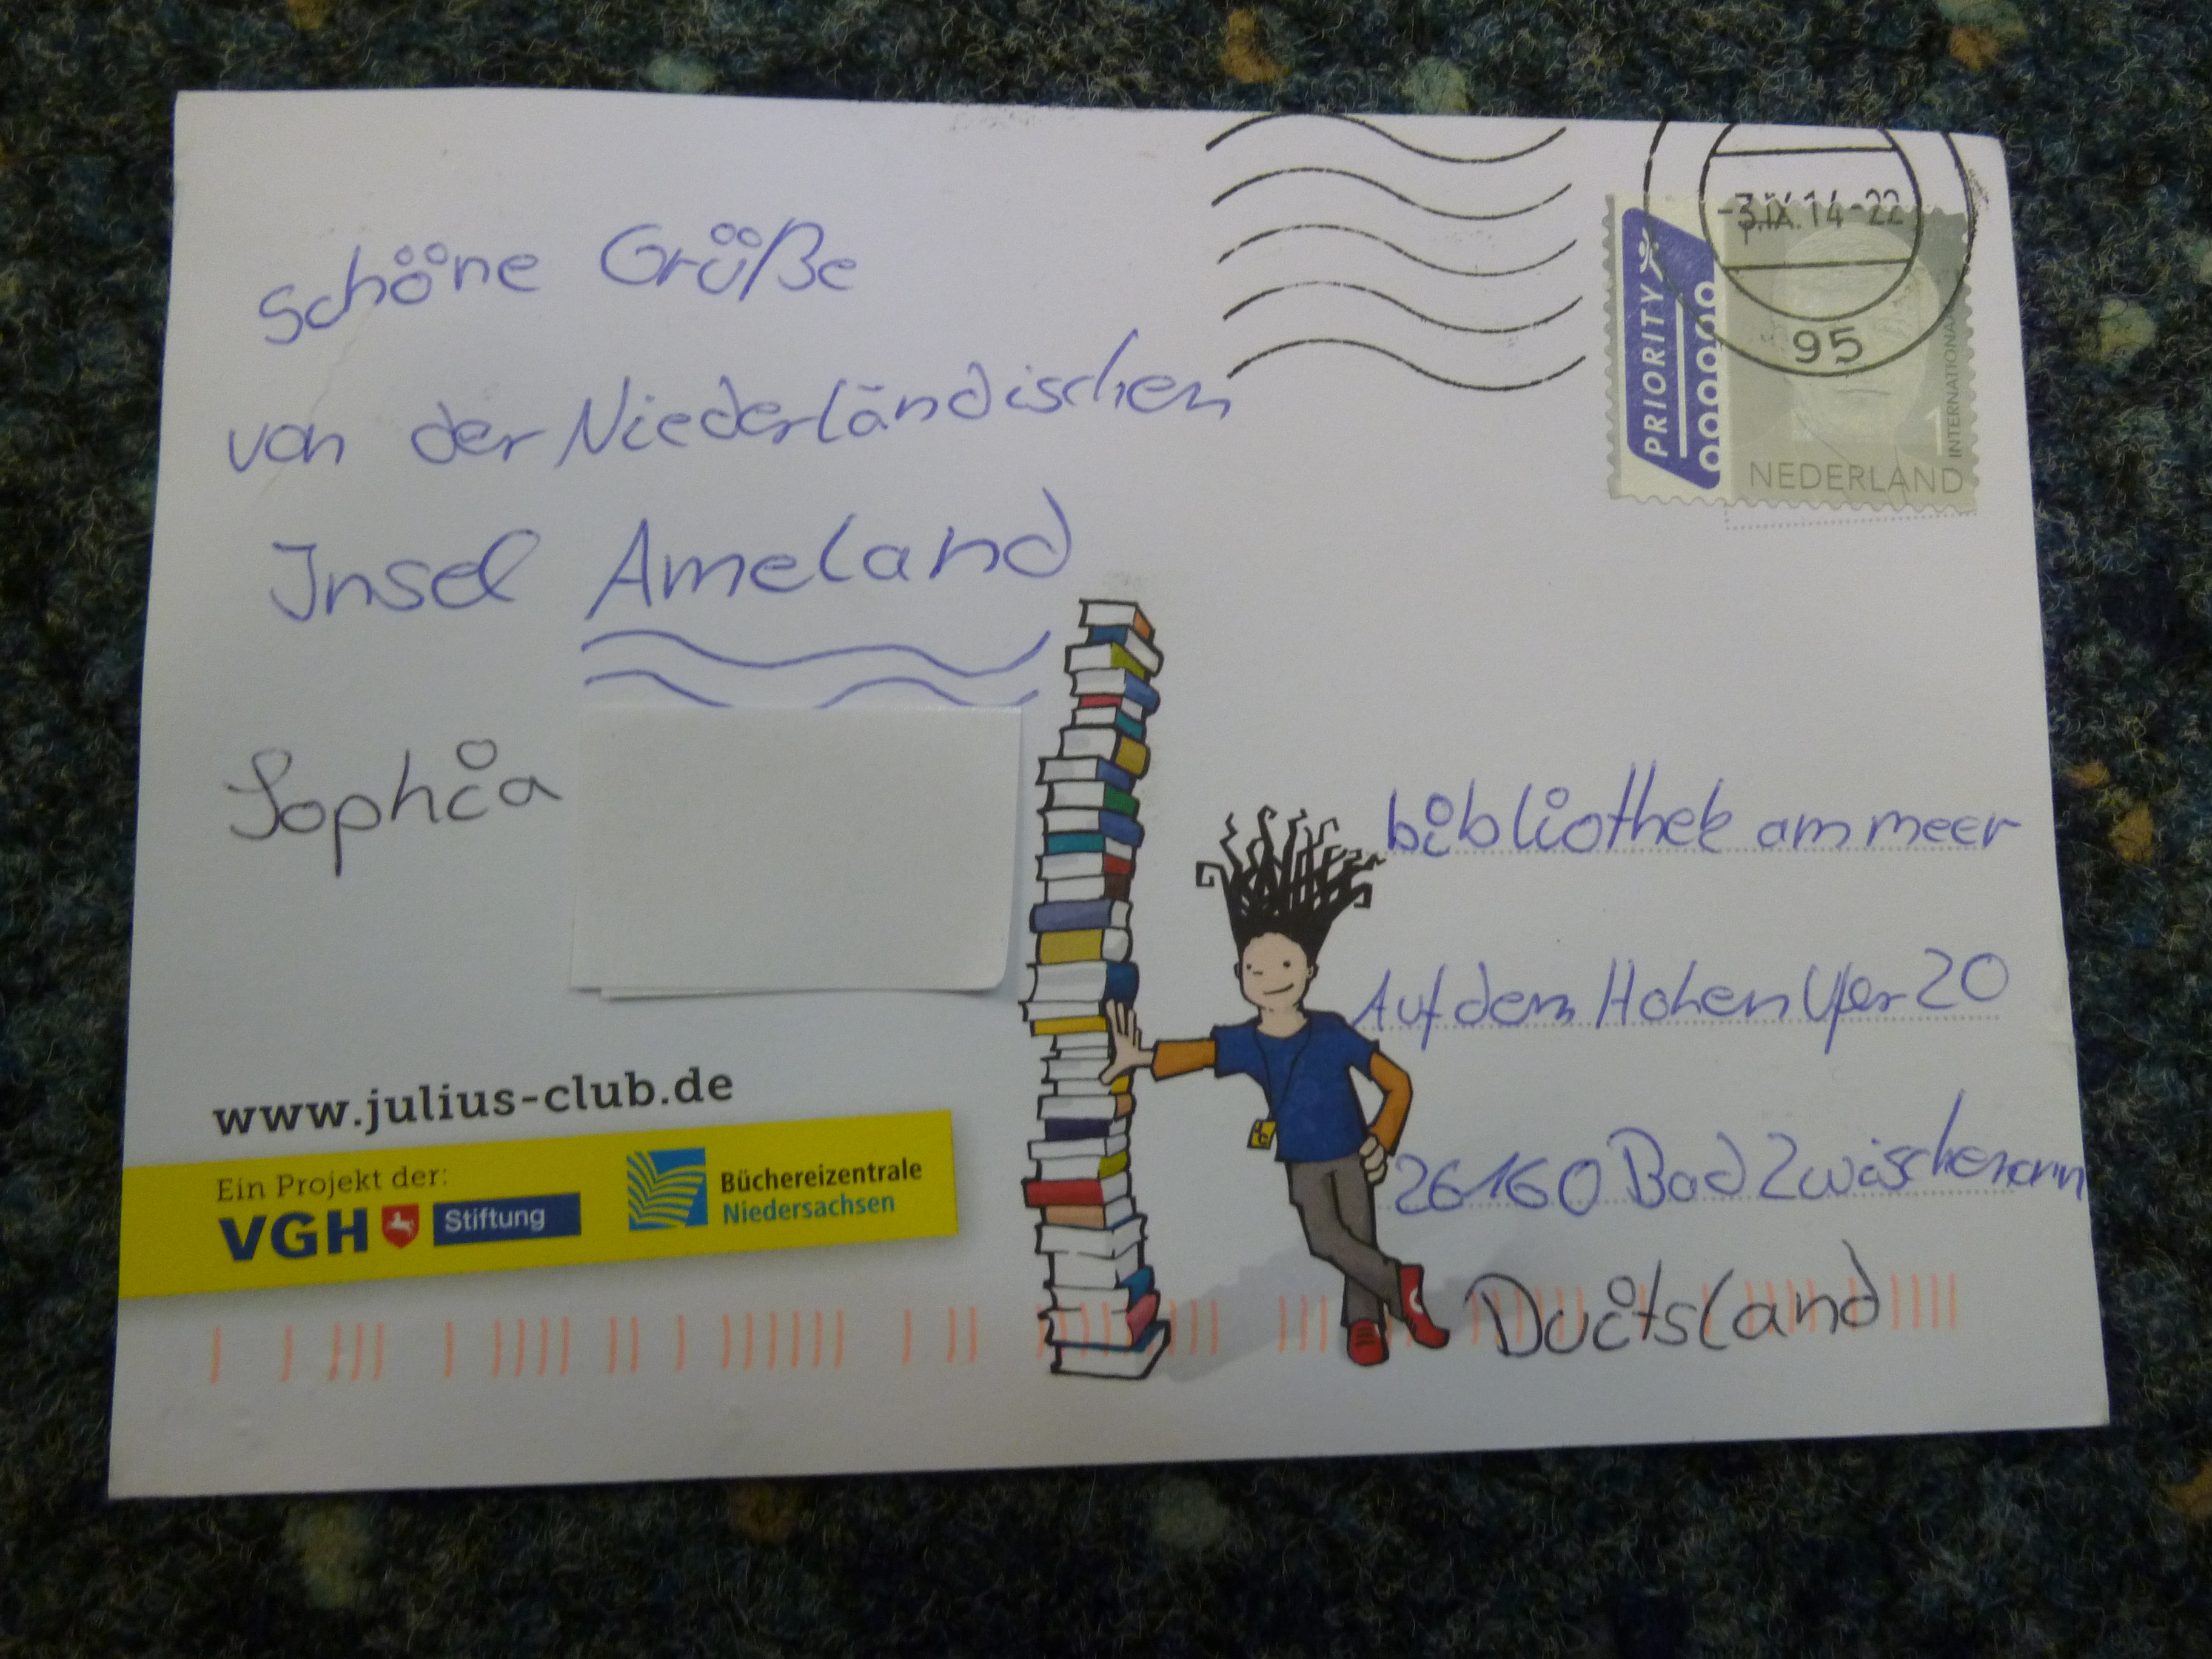 schöne Grüße
von der Niederländischen
Insel Ameland
Sophia
www.julius-club.de
Ein Projekt der:
VGH Stiftung
Büchereizentrale
Niedersachsen
-3.IX.14-22
95
PRIORITY
1
INTERNATIONAL
NEDERLAND
bibliothek am meer
Auf dem Hohen Ufer 20
26160 Bad Zwischenann
Duitsland
JC